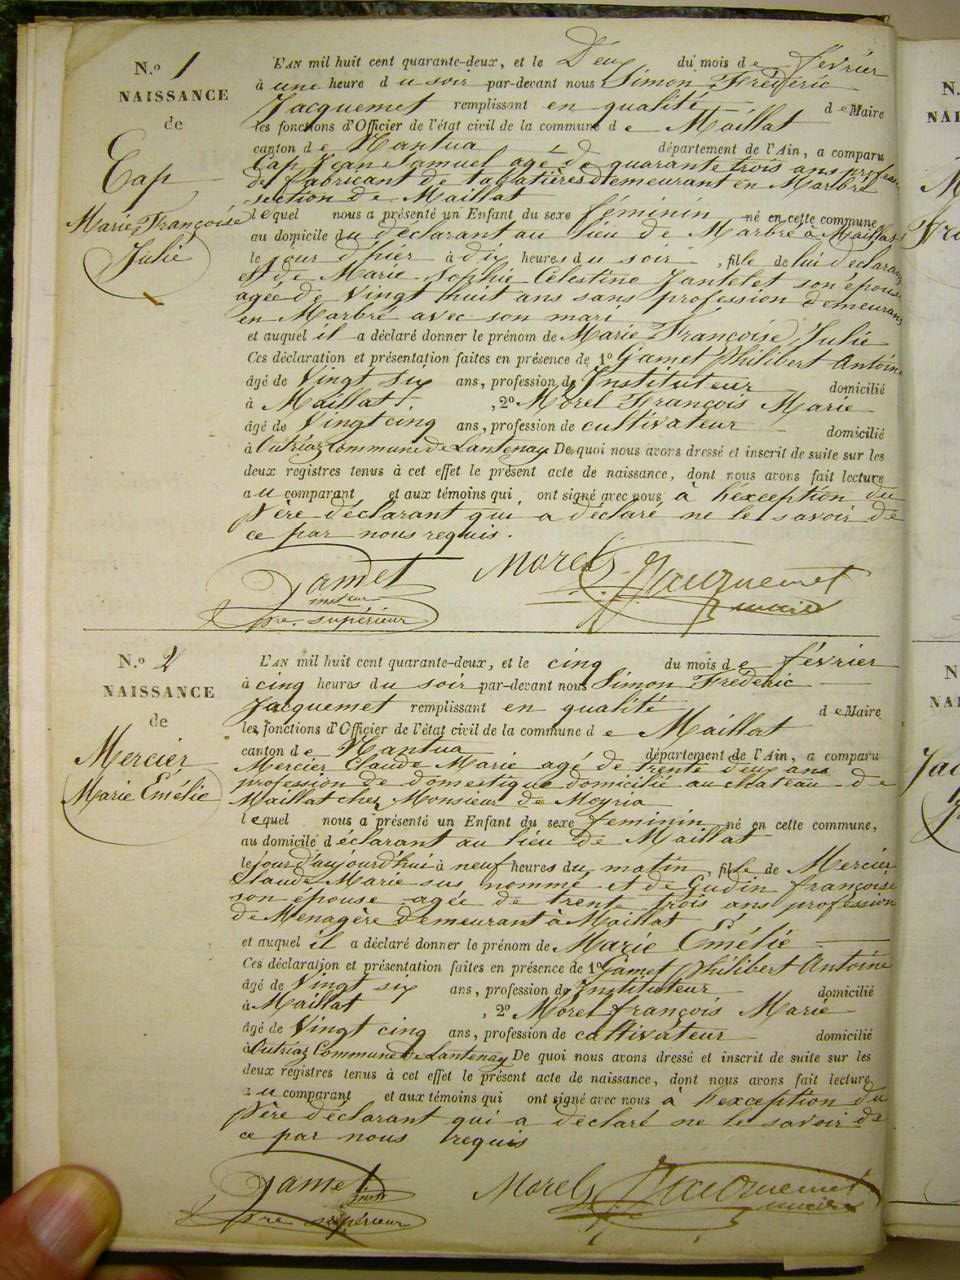 N.o 1
NAISSANCE
de
Cap
Marie, Françoise
Julie
L'AN mil huit cent quarante-deux, et le Deux du mois de février
à une heure du soir par-devant nous Simon Frédéric
Jacquemet remplissant en qualité de Maire
les fonctions d'Officier de l'état civil de la commune de Maillat
canton de Nantua département de l'Ain, a comparu
Cap Jean Samuel agé de quarante trois ans profession
de fabricant de tabatières demeurant en Marbre
section de Maillat
lequel nous a présenté un Enfant du sexe féminin né en cette commune,
au domicile du déclarant au lieu de Marbre à Maillat
le jour d'hier à dix heures du soir, fille de lui déclarant
et de Marie Sophie Célestine Jantelet son épouse
agée de vingt huit ans sans profession demeurant
en Marbre avec son mari
et auquel il a déclaré donner le prénom de Marie, Françoise, Julie
Ces déclaration et présentation faites en présence de 1o Gamet Philibert Antoine
âgé de Vingt six ans, profession de Instituteur domicilié
à Maillat, 2o Morel François Marie
âgé de Vingt cinq ans, profession de cultivateur domicilié
à Outriaz Commune de Lantenay De quoi nous avons dressé et inscrit de suite sur les
deux registres tenus à cet effet le présent acte de naissance, dont nous avons fait lecture
au comparant et aux témoins qui ont signé avec nous à l'exception du
Père déclarant qui a déclaré ne le savoir de
ce par nous requis.
Gamet Morel Jacquemet
maire
supérieur
N.o 2
NAISSANCE
de
Mercier
Marie Emélie
L'AN mil huit cent quarante-deux, et le cinq du mois de février
à cinq heures du soir par-devant nous Simon Frédéric
Jacquemet remplissant en qualité de Maire
les fonctions d'Officier de l'état civil de la commune de Maillat
canton de Nantua département de l'Ain, a comparu
Mercier Claude Marie agé de trente deux ans
profession de domestique domicilié au château de
Maillat chez Monsieur de Meyria
lequel nous a présenté un Enfant du sexe feminin né en cette commune,
au domicile déclarant au lieu de Maillat
le jour d'aujourd'hui à neuf heures du matin, fille de Mercier
Claude Marie sus nommé et de Gudin françoise
son épouse agée de trente trois ans profession
de Menagère demeurant à Maillat
et auquel il a déclaré donner le prénom de Marie Emélie
Ces déclaration et présentation faites en présence de 1o Gamet Philibert Antoine
âgé de Vingt six ans, profession de Instituteur domicilié
à Maillat, 2o Morel françois Marie
âgé de Vingt cinq ans, profession de cultivateur domicilié
à Outriaz Commune de Lantenay De quoi nous avons dressé et inscrit de suite sur les
deux registres tenus à cet effet le présent acte de naissance, dont nous avons fait lecture
au comparant et aux témoins qui ont signé avec nous à l'exception du
Père déclarant qui a déclaré ne le savoir de
ce par nous requis
Gamet Morel Jacquemet
maire
supérieur